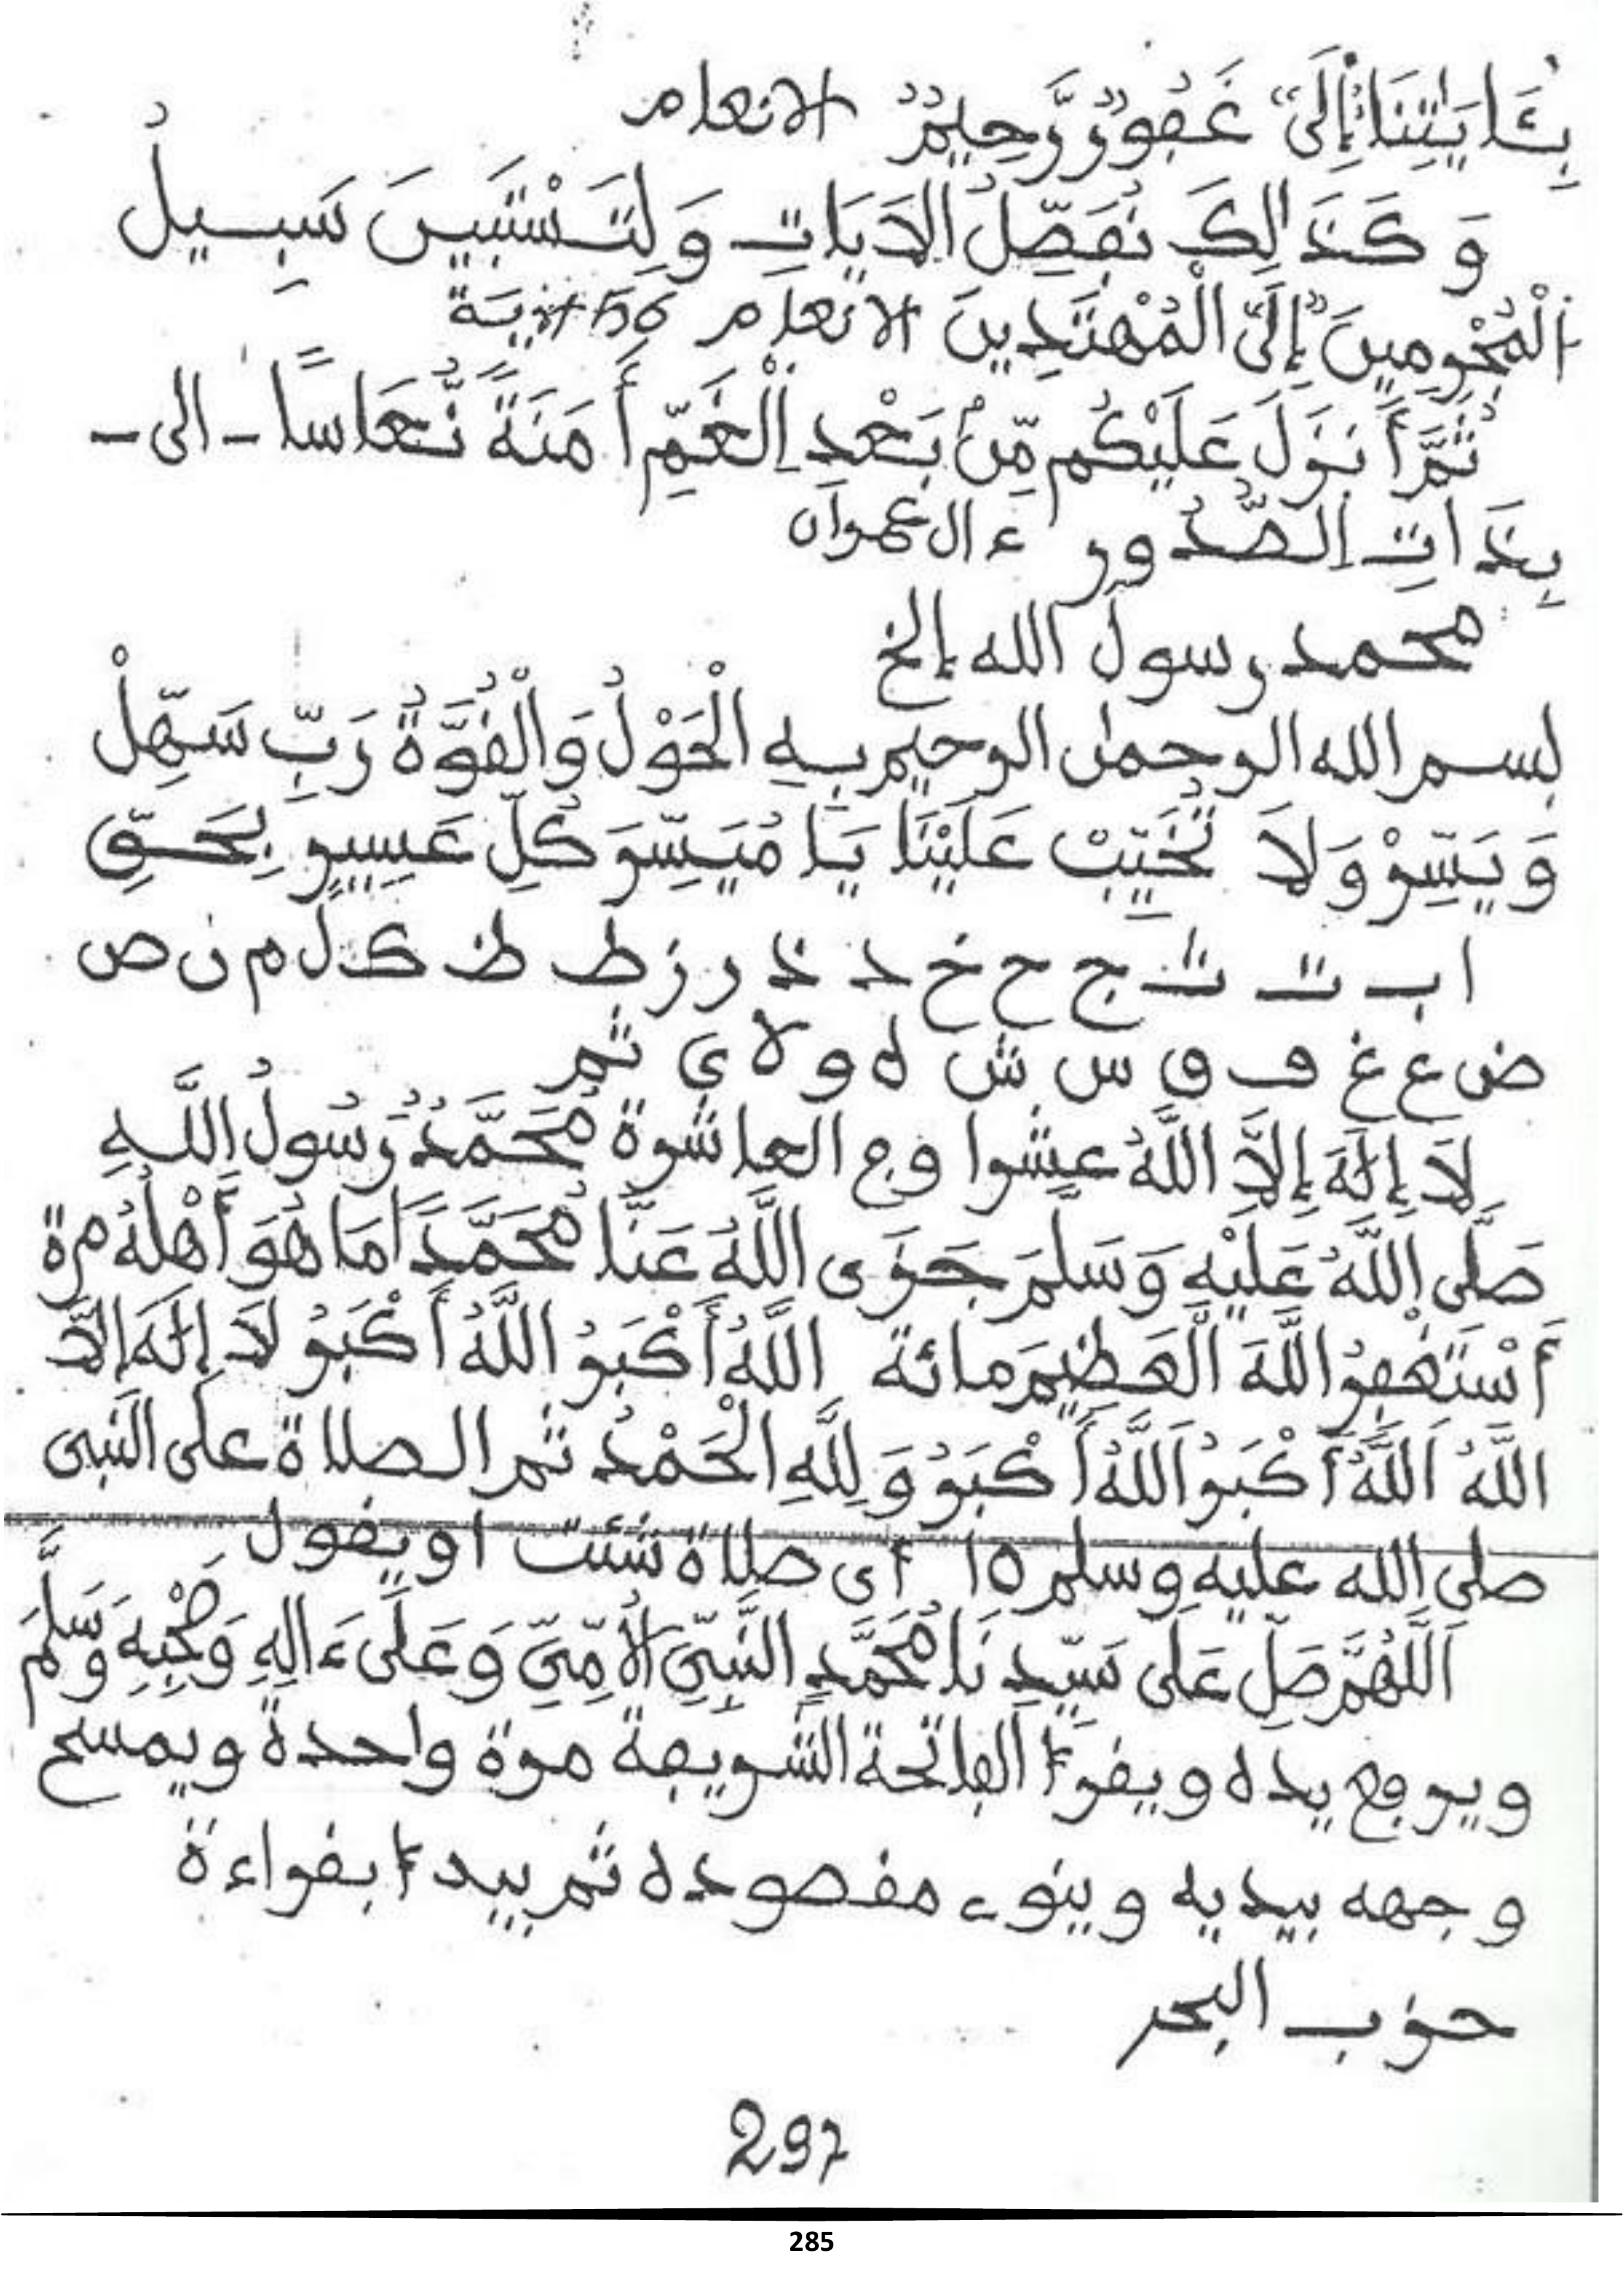 بِـَٔايَٰتِنَا "إِلَىٰ" غَفُورٌ رَّحِيمٌ الانعام
وَكَذَالِكَ نُفَصِّلُ الَايَاتِ وَلِتَسْتَبِينَ سَبِيلُ
الْمُجْرِمِينَ "إِلَى" الْمُهْتَدِينَ الانعام 56 ءاية
ثُمَّ أَنزَلَ عَلَيْكُم مِّنْ بَعْدِ الْغَمِّ أَمَنَةً نُّعَاسًا - الى -
بِذَاتِ الصُّدُورِ ءال عمران
محمد رسول الله إلخ
بسم الله الرحمان الرحيم بِهِ الْحَوْلُ وَالْقُوَّةُ رَبِّ سَهِّلْ
وَيَسِّرْ وَلَا تُخَيِّبْ عَلَيْنَا يَا مُيَسِّرَ كُلِّ عَسِيرٍ بِحَقِّ
ا ب ت ث ج ح خ د ذ ر ز ط ظ ك ل م ن ص
ض ع غ ف ق س ش ه و لا ي ثم
لَا إِلَهَ إِلَّا اللَّهُ عشرا وفي العاشرة مُحَمَّدٌ رَسُولُ اللَّهِ
صَلَّى اللَّهُ عَلَيْهِ وَسَلَّمَ جَزَى اللَّهُ عَنَّا مُحَمَّدًا مَا هُوَ أَهْلُهُ مرة
أَسْتَغْفِرُ اللَّهَ الْعَظِيمَ مائة اللَّهُ أَكْبَرُ اللَّهُ أَكْبَرُ لَا إِلَهَ إِلَّا
اللَّهُ اَللَّهُ أَكْبَرُ اَللَّهُ أَكْبَرُ وَلِلَّهِ الْحَمْدُ ثم الصلاة على النبى
صلى الله عليه وسلم 10 أى صلاة شئت أو يقول
اَللَّهُمَّ صَلِّ عَلَى سَيِّدِنَا مُحَمَّدٍ النَّبِيِّ الْأُمِّيِّ وَعَلَى ءَالِهِ وَصَحْبِهِ وَسَلَّمَ
ويرفع يده ويقرأ الفاتحة الشريفة مرة واحدة ويمسح
وجهه بيديه وينوى مقصوده ثم يبدأ بقراءة
حزب البحر
297
285